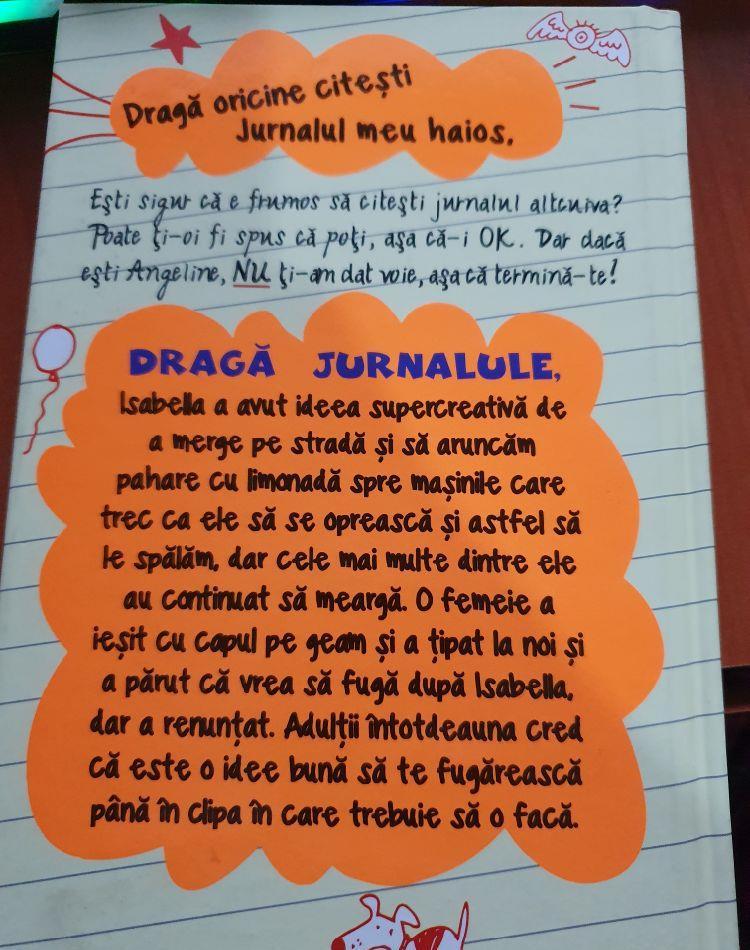 Dragă oricine citești
Jurnalul meu haios,
Ești sigur că e frumos să citești jurnalul altcuiva?
Poate ți-oi fi spus că poți, așa că-i OK. Dar dacă
ești Angeline, NU ți-am dat voie, așa că termină-te!
DRAGĂ JURNALULE,
Isabella a avut ideea supercreativă de
a merge pe stradă și să aruncăm
pahare cu limonadă spre mașinile care
trec ca ele să se oprească și astfel să
le spălăm, dar cele mai multe dintre ele
au continuat să meargă. O femeie a
ieșit cu capul pe geam și a țipat la noi și
a părut că vrea să fugă după Isabella,
dar a renunțat. Adulții întotdeauna cred
că este o idee bună să te fugărească
până în clipa în care trebuie să o facă.